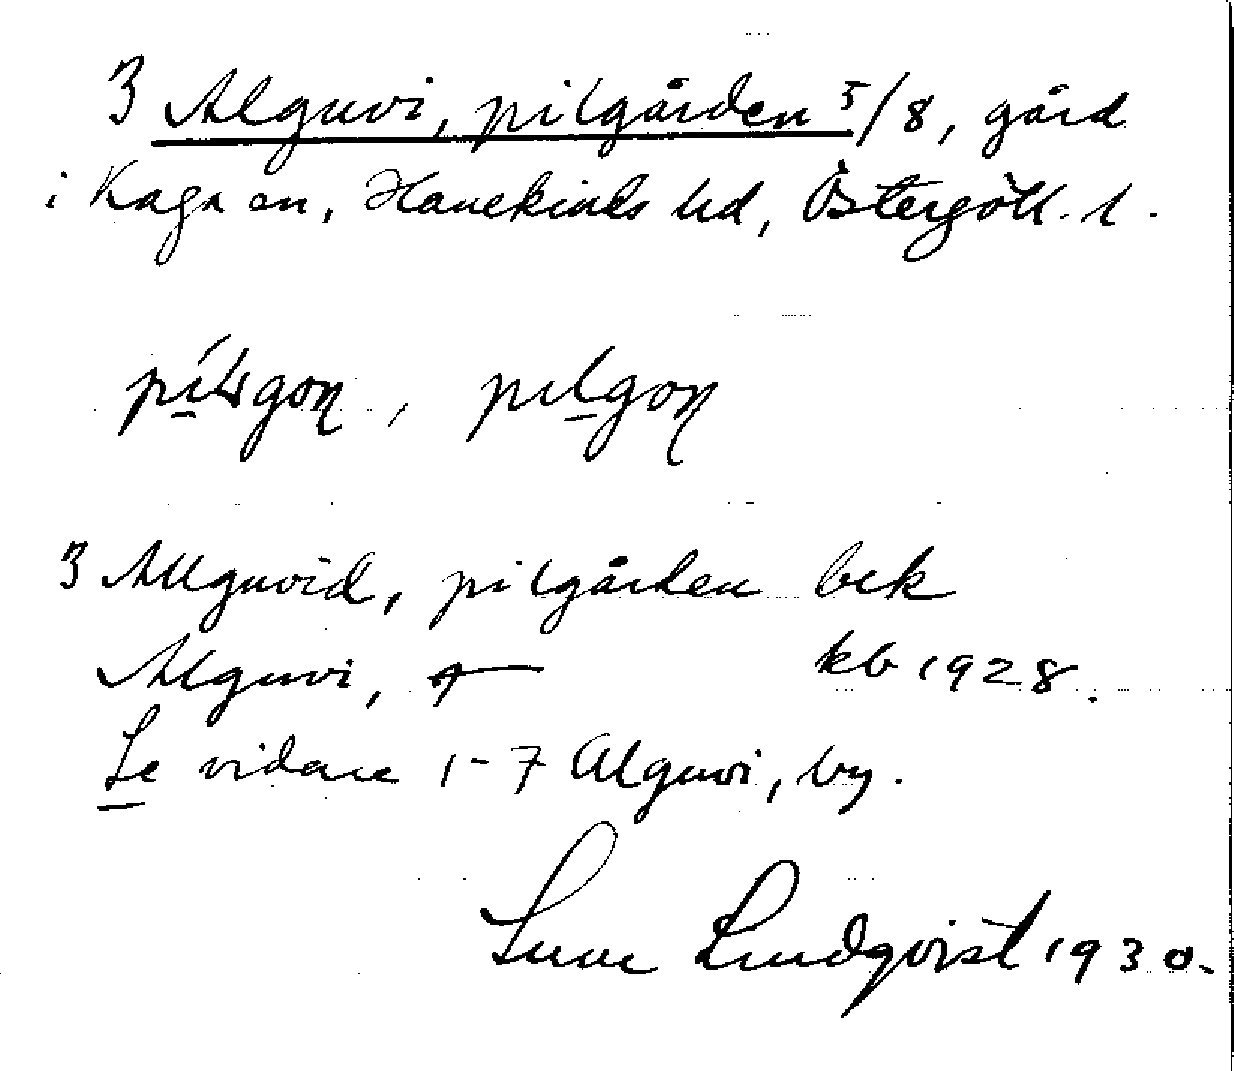 3 Alguvi, pilgården 5/8, gård
i Kaga sn, Hanekinds hd, Östergötl. l.
pilgoṇ, pilgoṇ
3 Allguvid, pilgården bek
Alguvi, kb 1928.
Se vidare 1-7 Alguvi, by.
Sune Lindqvist 1930.